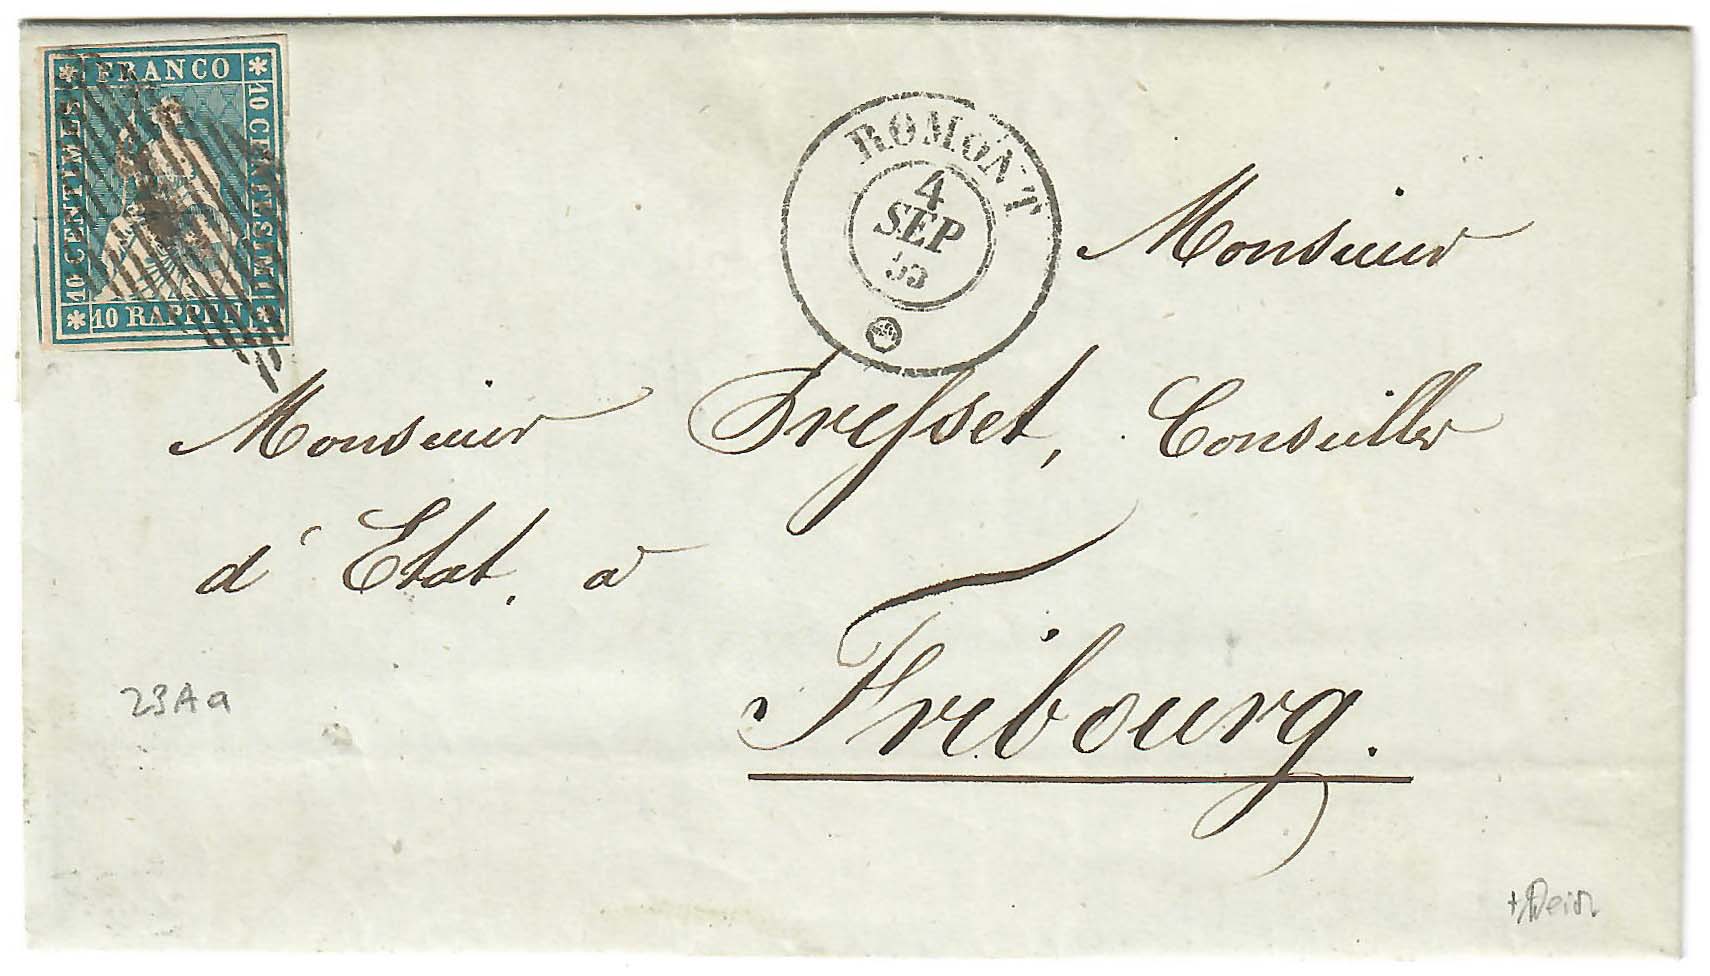 FRANCO
10 CENTIMES
10 CENTESIMI
10 RAPPEN
ROMONT
4
SEP
53
Monsieur
Monsieur Fresset, Conseiller
d'Etat, a
Fribourg.
23Aa